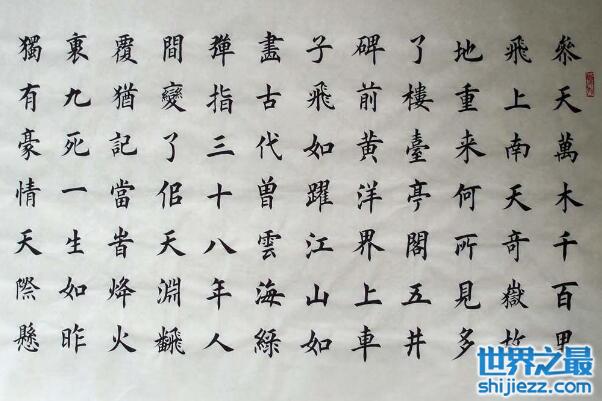 叅天萬木千百里
飛上南天奇嶽故
地重来何所見多
了樓臺亭閣五井
碑前黃洋界上車
子飛如躍江山如
畫古代曾雲海綠
彈指三十八年人
間變了佀天淵飜
覆猶記當旹烽火
裏九死一生如昨
獨有豪情天際懸
世界之最
shijiezz.com